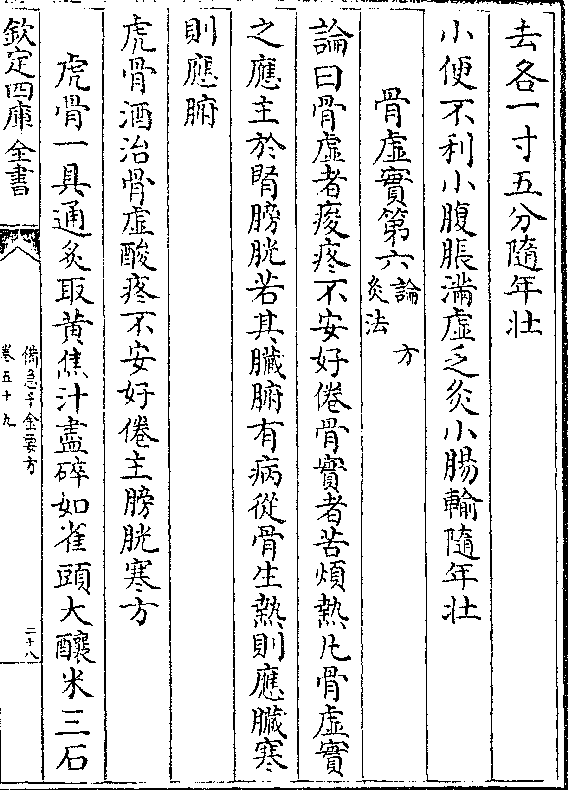 去各一寸五分隨年壯
小便不利小腹脹滿虛乏灸小腸輸隨年壯
骨虛實第六論 方 灸法
論曰骨虛者痠疼不安好倦骨實者苦煩熱凡骨虛實
之應主於腎膀胱若其臟腑有病從骨生熱則應臟寒
則應腑
虎骨酒治骨虛酸疼不安好倦主膀胱寒方
虎骨一具通炙取黃焦汁盡碎如雀頭大釀米三石
欽定四庫全書
備急千金要方
卷五十九
二十八